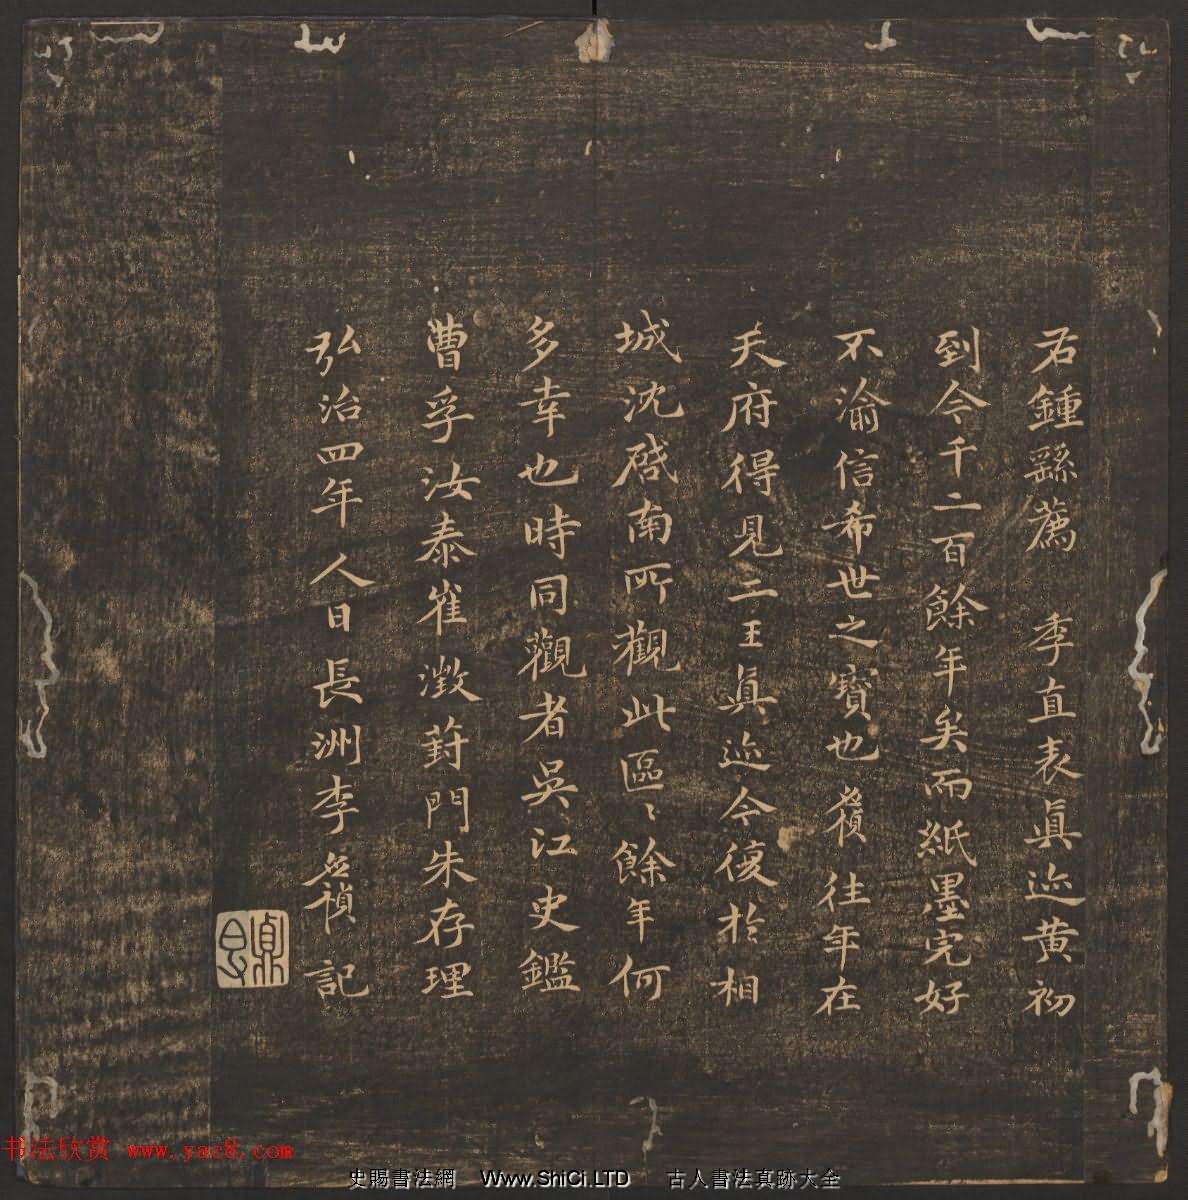 右鍾繇薦 季直表眞迹黃初
到今千二百餘年矣而紙墨完好
不渝信希世之寶也應禎往年在
天府得見二王眞迹今復於相
城沈啓南所觀此區〻餘年何
多幸也時同觀者吳江史鑑
曹孚汝泰崔澂葑門朱存理
弘治四年人日長洲李應禎記
书法欣赏 www.yac8.com
史賜書法網 Www.ShiCi.LTD 古人書法真跡大全